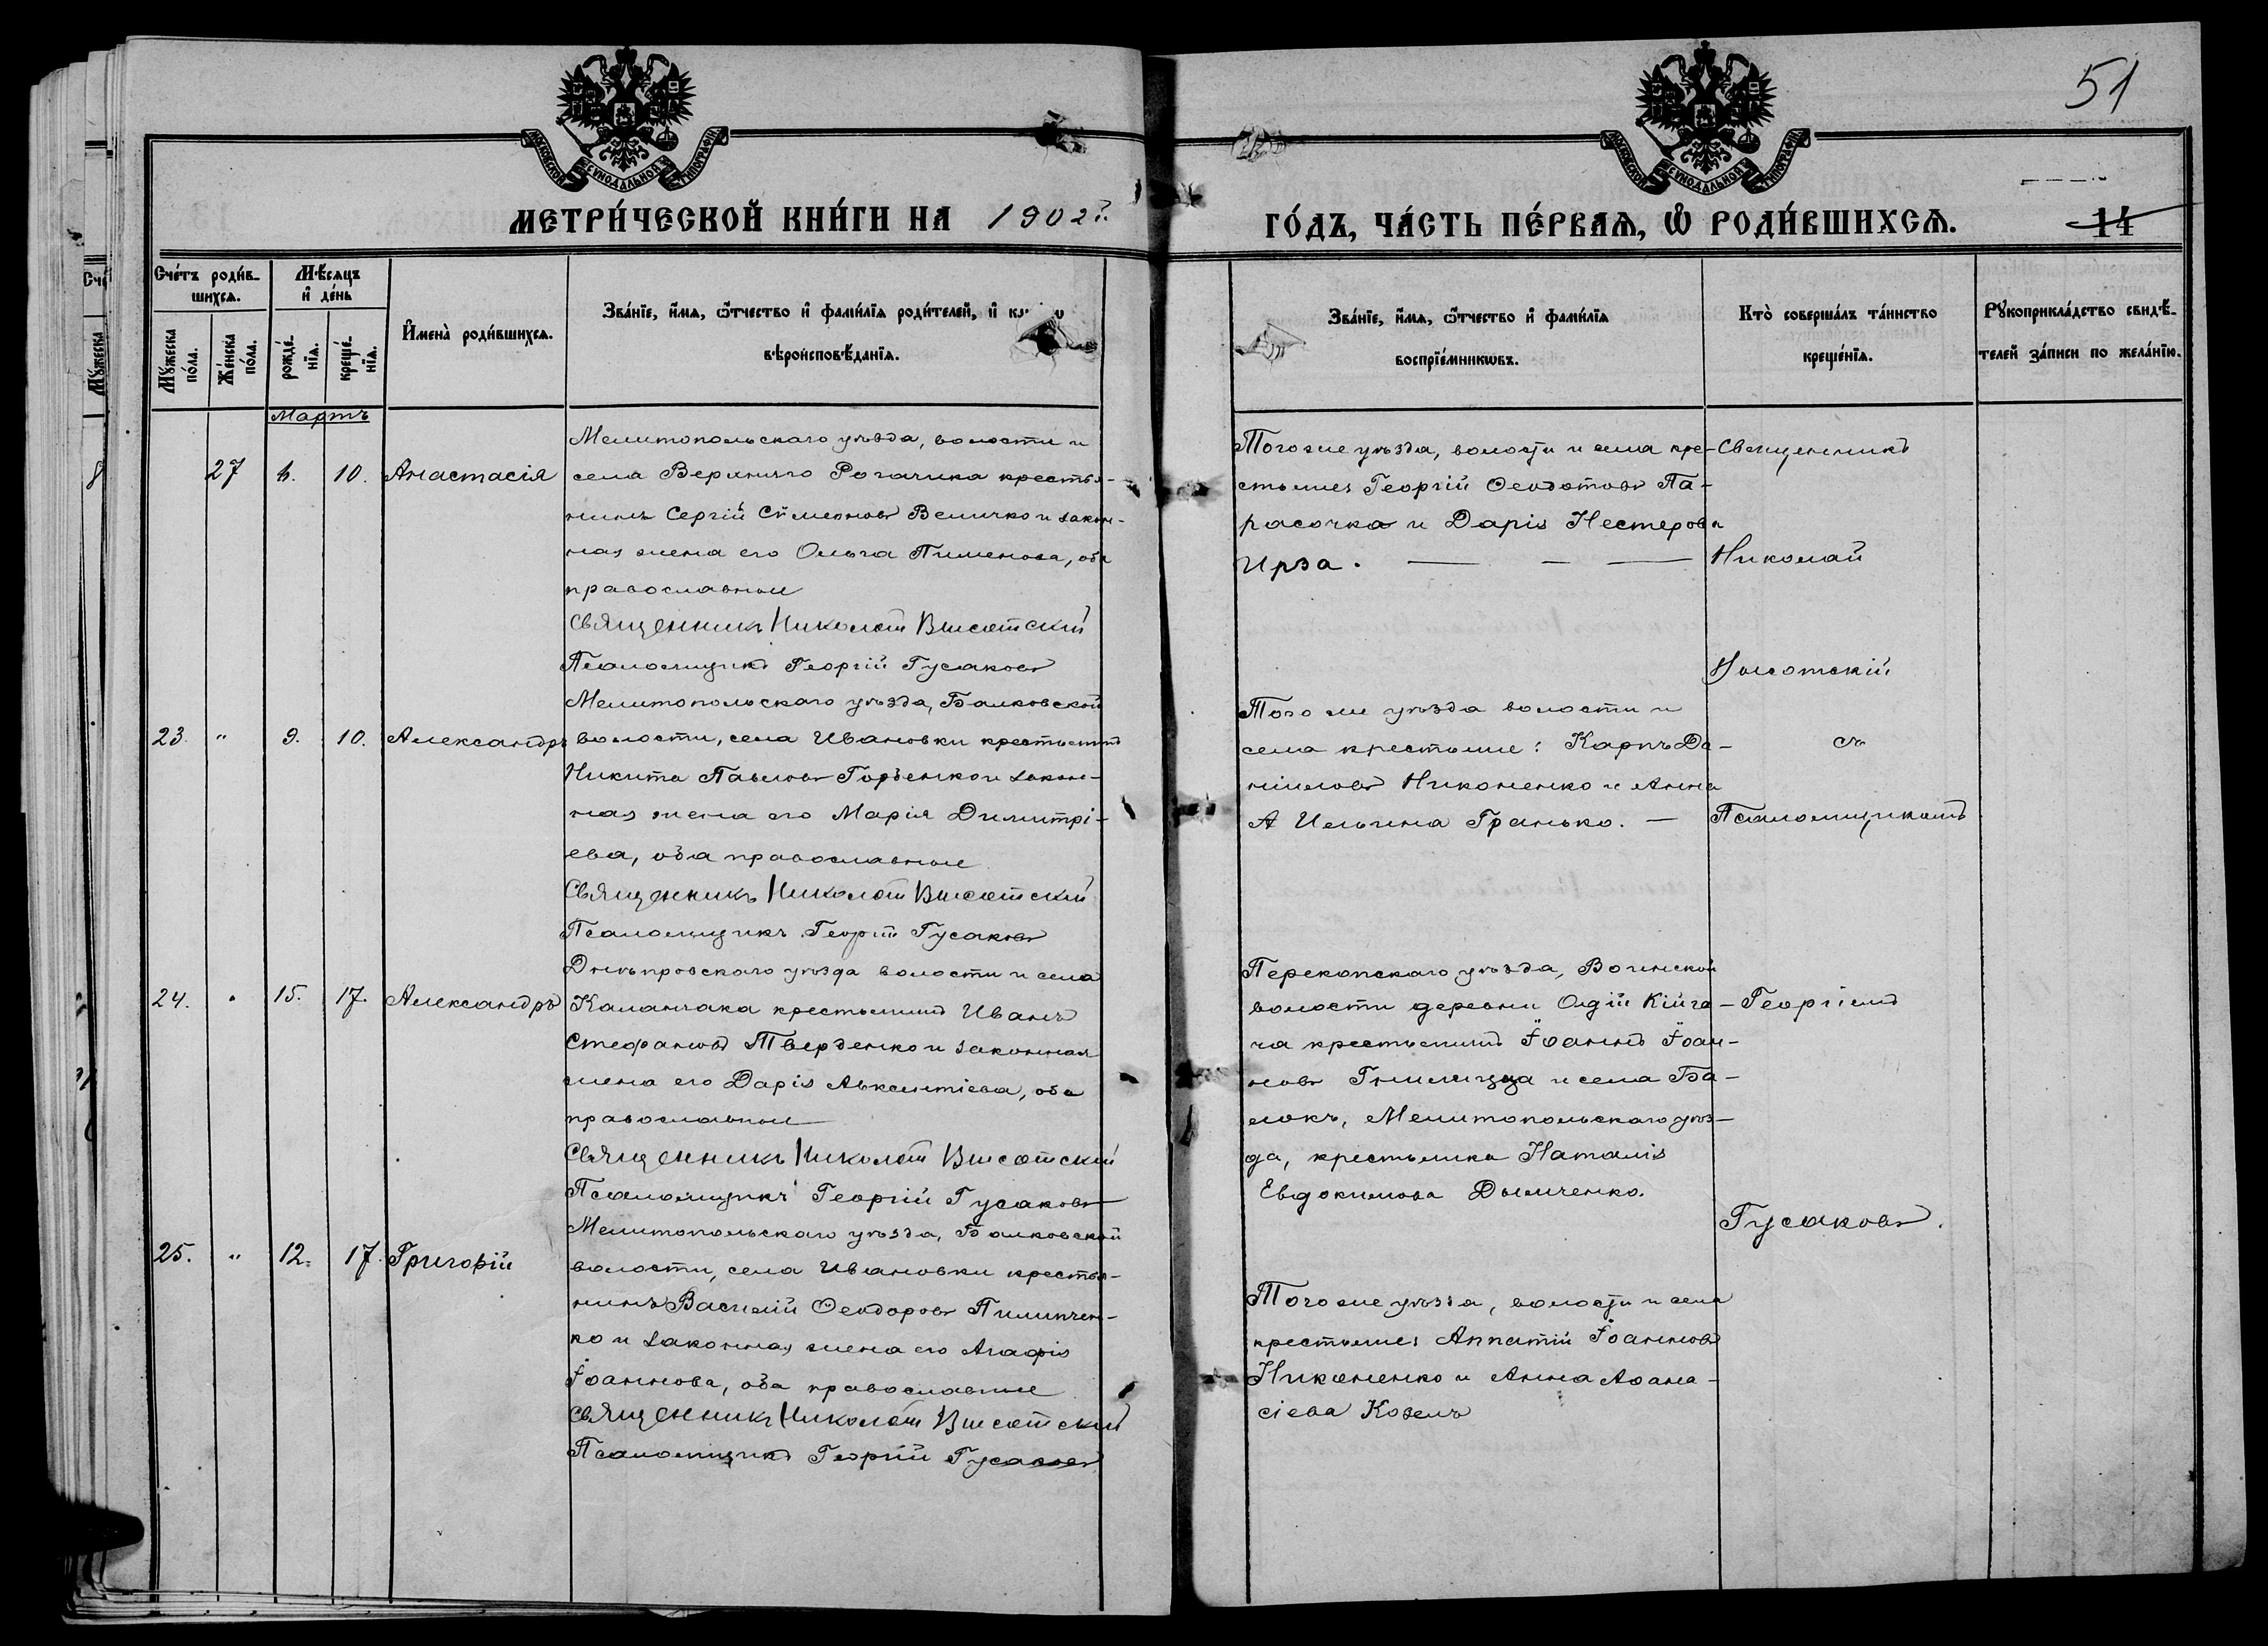 51
МЕТРИ́ЧЕСКОЙ КНИ́ГИ НА 1902 г.
ГО́ДЪ, ЧА́СТЬ ПЕ́РВАѦ, Ѡ҆ РОДИ́ВШИХСѦ.
14
Сче́тъ роди́в-
шихсѧ.
Мѣ́сѧцъ
и҆ де́нь
Мꙋ́жеска
по́ла.
Же́нска
по́ла.
рожде́-
нїѧ.
креще́-
нїѧ.
И҆мена̀ роди́вшихсѧ.
Зва́нїе, и҆́мѧ, ѻ҆́тчество и҆ фами́лїѧ роди́телей, и҆
вѣроисповѣ́данїѧ.
Зва́нїе, и҆́мѧ, ѻ҆́тчество и҆ фами́лїѧ
воспрїе́мникѡвъ.
Кто̀ соверша́лъ та́инство
креще́нїѧ.
Рꙋкоприкла́дство свидѣ́-
телей за́писи по жела́нїю.
Мартъ
27 10. Анастасія
Мелитопольскаго уѣзда, волости и
села Верхняго Рогачика крестья-
нинъ Сергій Сѵмеоновъ Величко и закон-
ная жена его Ольга Пименова, оба
православные
Священникъ Николай Высотскій
Псаломщикъ Георгій Гусаковъ
Того же уѣзда, волости и села кре-
стьяне: Георгій Ѳеодотовъ Па-
расочка и Дарія Нестерова
Ирза.
Священникъ
Николай
Высотскій
23. " 9. 10. Александръ
Мелитопольскаго уѣзда, Балковской
волости, села Ивановки крестьянинъ
Никита Павловъ Горбенко и закон-
ная жена его Марія Димитрі-
ева, оба православные
Священникъ Николай Высотскій
Псаломщикъ Георгій Гусаковъ
Того же уѣзда волости и
села крестьяне: Карпъ Да-
ніиловъ Никоненко и Анна
А Ильина Гранько.
съ
Псаломщикомъ
24. " 15. 17. Александръ
Днѣпровскаго уѣзда волости и села
Каланчака крестьянинъ Иванъ
Стефановъ Твердченко и законная
жена его Дарія Авксентіева, оба
православные
Священникъ Николай Высотскій
Псаломщикъ Георгій Гусаковъ
Перекопскаго уѣзда, Воинской
волости деревни Кійга-
ча крестьянинъ Іоаннъ Іоан-
новъ и села Ба-
локъ, Мелитопольскаго уѣз-
да, крестьянка Наталія
Евдокимова Дымченко.
Георгіемъ
Гусаковъ.
25. " 12. 17. Григорій
Мелитопольскаго уѣзда, Балковской
волости, села Ивановки крестья-
нинъ Василій Ѳеодоровъ Пилипчен-
ко и законная жена его Агафія
Іоаннова, оба православные
Священникъ Николай Высотскій
Псаломщикъ Георгій Гусаковъ
Того же уѣзда, волости и села
крестьяне: Ипатій Іоанновъ
Никоненко и Анна Аѳана-
сіева Козелъ